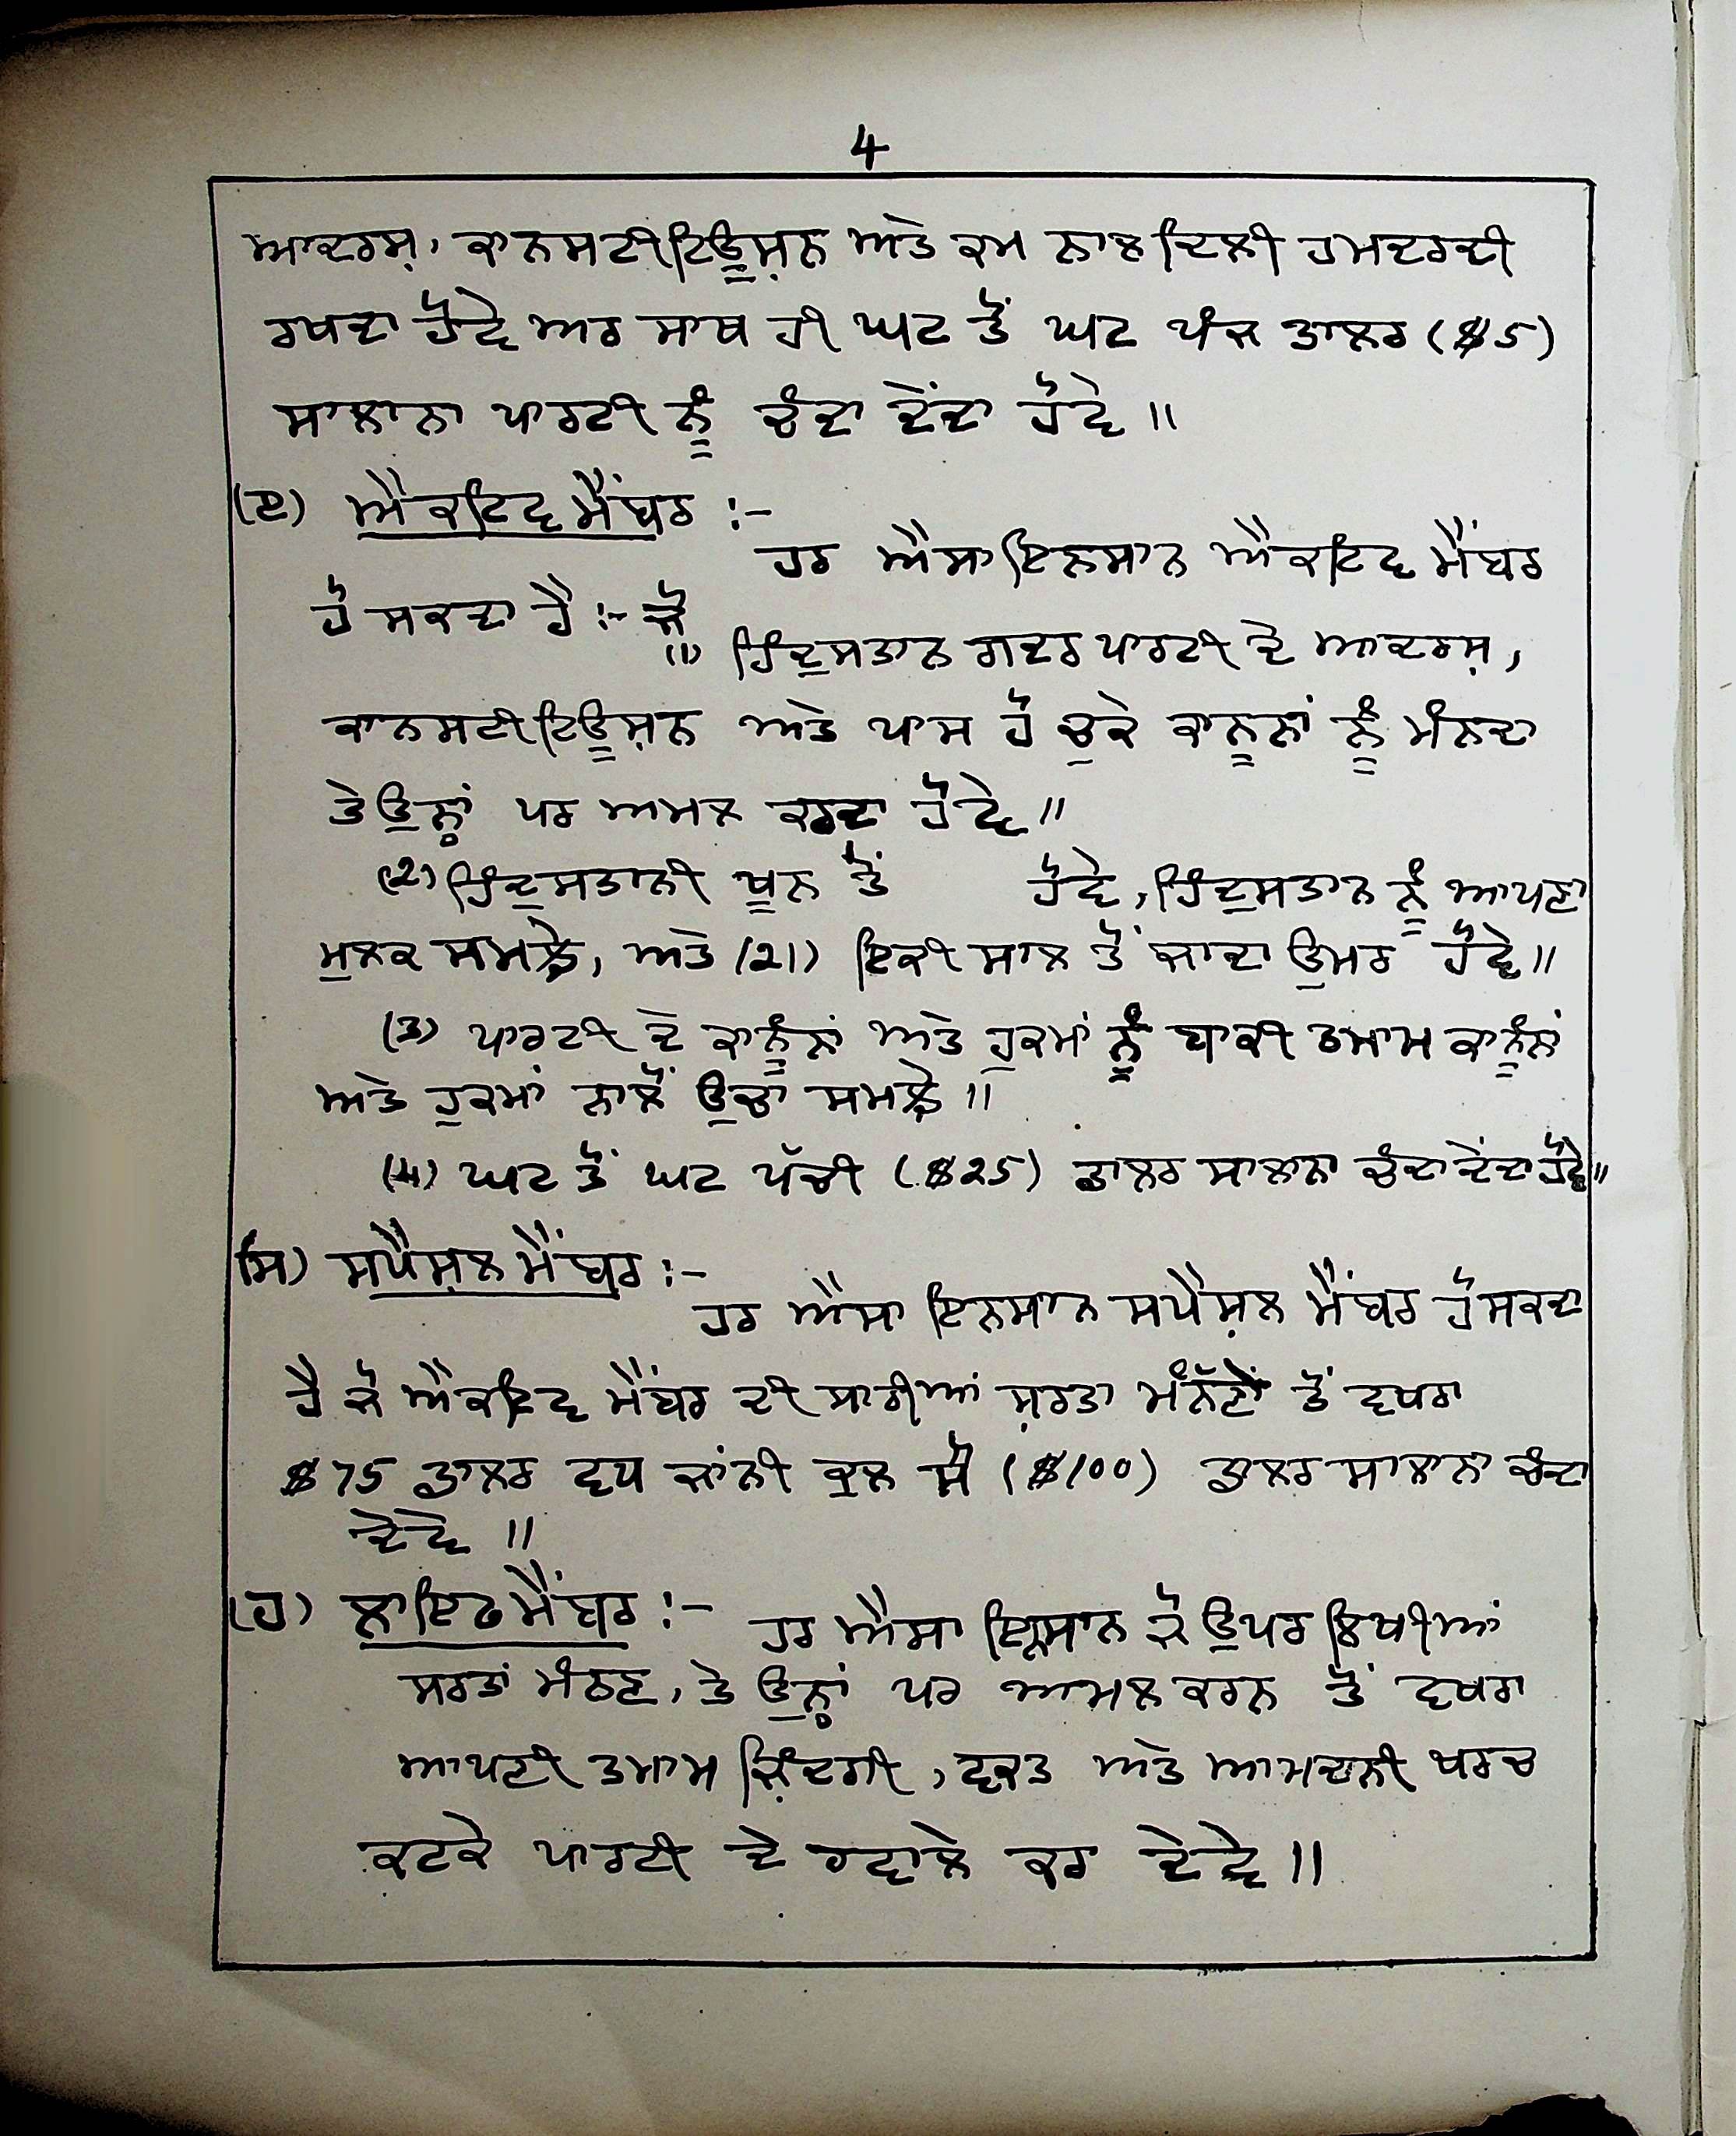 4
ਆਦਰਸ਼, ਕਾਨਸਟੀਟਿਊਸ਼ਨ ਅਤੇ ਕਮ ਨਾਲ ਦਿਲੀ ਹਮਦਰਦੀ
ਰਖਦਾ ਹੋਵੇ ਅਰ ਸਾਥ ਹੀ ਘਟ ਤੋਂ ਘਟ ਪੰਜ ਡਾਲਰ ($5)
ਸਾਲਾਨਾ ਪਾਰਟੀ ਨੂੰ ਚੰਦਾ ਦੇਂਦਾ ਹੋਵੇ ॥
(ੲ) ਐਕਟਿਵ ਮੈਂਬਰ :-
ਹਰ ਐਸਾ ਇਨਸਾਨ ਐਕਟਿਵ ਮੈਂਬਰ
ਹੋ ਸਕਦਾ ਹੈ :- ਜੋ
(1) ਹਿੰਦੁਸਤਾਨ ਗਦਰ ਪਾਰਟੀ ਦੇ ਆਦਰਸ਼,
ਕਾਨਸਟੀਟਿਊਸ਼ਨ ਅਤੇ ਪਾਸ ਹੋ ਚੁਕੇ ਕਾਨੂਨਾਂ ਨੂੰ ਮੰਨਦਾ
ਤੇ ਉਨ੍ਹਾਂ ਪਰ ਅਮਲ ਕਰਦਾ ਹੋਵੇ ॥
(2) ਹਿੰਦੁਸਤਾਨੀ ਖੂਨ ਤੋਂ ਹੋਵੇ, ਹਿੰਦੁਸਤਾਨ ਨੂੰ ਆਪਣਾ
ਮੁਲਕ ਸਮਝੇ, ਅਤੇ (21) ਇਕੀ ਸਾਲ ਤੋਂ ਜਾਦਾ ਉਮਰ ਹੋਵੇ ॥
(3) ਪਾਰਟੀ ਦੇ ਕਾਨੂੰਨਾਂ ਅਤੇ ਹੁਕਮਾਂ ਨੂੰ ਬਾਕੀ ਤਮਾਮ ਕਾਨੂੰਨਾਂ
ਅਤੇ ਹੁਕਮਾਂ ਨਾਲੋਂ ਉਚਾ ਸਮਝੇ ॥
(4) ਘਟ ਤੋਂ ਘਟ ਪੱਚੀ ($25) ਡਾਲਰ ਸਾਲਾਨਾ ਚੰਦਾ ਦੇਂਦਾ ਹੋਵੇ ॥
(ਸ) ਸਪੈਸ਼ਲ ਮੈਂਬਰ :-
ਹਰ ਐਸਾ ਇਨਸਾਨ ਸਪੈਸ਼ਲ ਮੈਂਬਰ ਹੋ ਸਕਦਾ
ਹੈ ਜੋ ਐਕਟਿਵ ਮੈਂਬਰ ਦੀ ਸਾਰੀਆਂ ਸ਼ਰਤਾ ਤੋਂ ਵਖਰਾ
$75 ਡਾਲਰ ਵਧ ਜਾਂਨੀ ਕੁਲ ਸੌ ($100) ਡਾਲਰ ਸਾਲਾਨਾ ਚੰਦਾ
ਦੇਵੇ ॥
(ਹ) ਲਾਇਫ ਮੈਂਬਰ :- ਹਰ ਐਸਾ ਇਨਸਾਨ ਜੋ ਉਪਰ ਲਿਖੀਆਂ
ਸਰਤਾਂ ਮੰਨਣ, ਤੇ ਉਨ੍ਹਾਂ ਪਰ ਆਮਲ ਕਰਨ ਤੋਂ ਵਖਰਾ
ਆਪਣੀ ਤਮਾਮ ਜ਼ਿੰਦਗੀ, ਵਕਤ ਅਤੇ ਆਮਦਨੀ ਖਰਚ
ਕਟਕੇ ਪਾਰਟੀ ਦੇ ਹਵਾਲੇ ਕਰ ਦੇਵੇ ॥